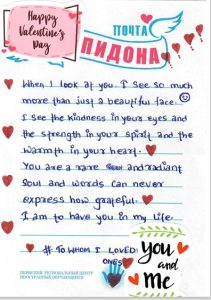 Happy
Valentine's
Day
ПОЧТА
ПИДОНА
When I look at you. I see so much
more than just a beautiful face.
I see the kindness in your eyes and
the strength in your spirit and the
warmth in your heart.
You are a rare and radiant
Soul and words can never
express how grateful.
I am to have you in my life.
# TO WHOM I LOVED
ONES
you
and
me
ПЕРМСКИЙ РЕГИОНАЛЬНЫЙ ЦЕНТР
ИНОСТРАННЫХ ОБУЧАЮЩИХСЯ